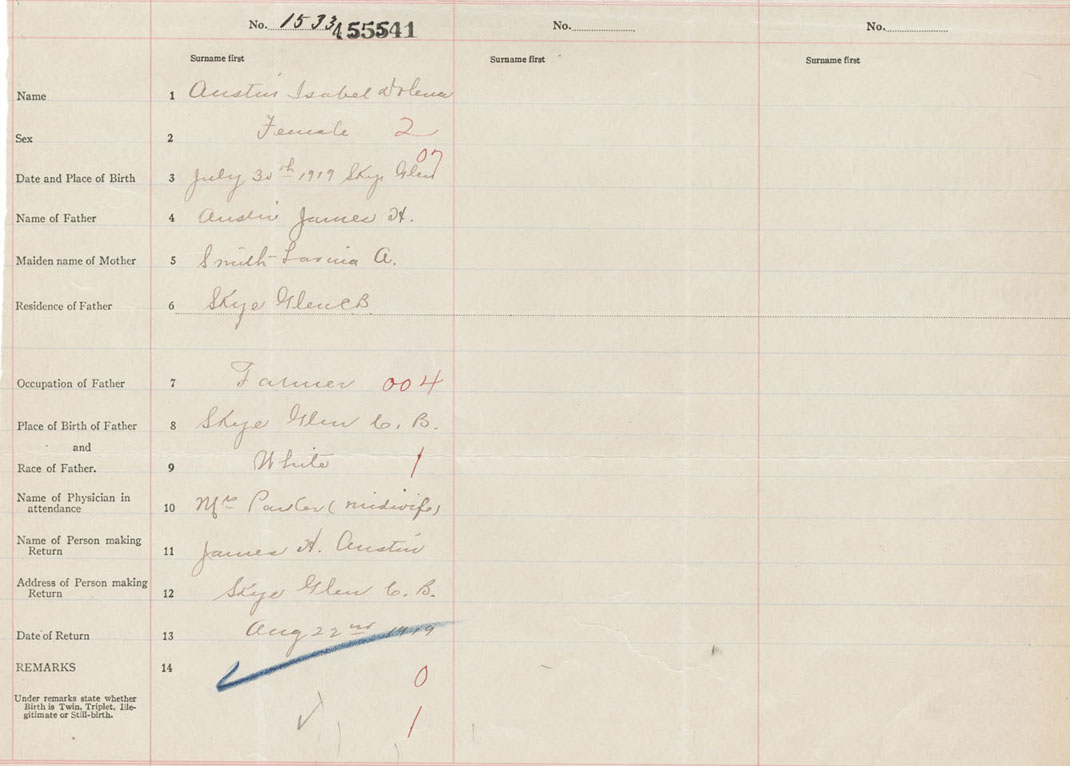 No. 1533 455541 No. No.
Surname first Surname first Surname first
Name 1 Austin Isabel Dolena
Sex 2 Female 2
07
Date and Place of Birth 3 July 30th 1919 Skye Glen
Name of Father 4 Austin James H.
Maiden name of Mother 5 Smith Lavina A.
Residence of Father 6 Skye Glen C B
Occupation of Father 7 Farmer 004
Place of Birth of Father 8 Skye Glen C. B.
and
Race of Father. 9 White 1
Name of Physician in
attendance 10 Mrs (midwife)
Name of Person making
Return 11 James H. Austin
Address of Person making
Return 12 Skye Glen C. B.
Date of Return 13 Aug 22nd 1919
REMARKS 14
0
Under remarks state whether
Birth is Twin, Triplet, Ille-
gitimate or Still-birth.
1